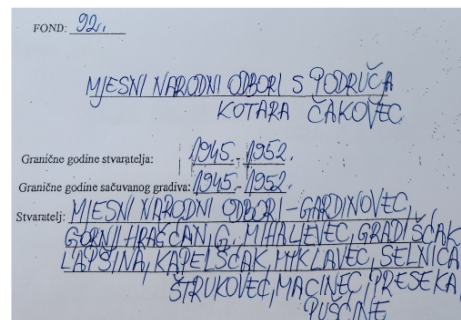 FOND: 92.
MJESNI NARODNI ODBORI S PODRUČA
KOTARA ČAKOVEC
Granične godine stvaratelja: 1945. - 1952.
Granične godine sačuvanog gradiva: 1945. - 1952.
Stvaratelj: MJESNI NARODNI ODBORI - GARDINOVEC,
GORNJI HRAŠĆAN, G. MIHALJEVEC, GRADIŠĆAK
LAPŠINA, KAPELŠĆAK, MIKLAVEC, SELNICA
ŠTRUKOVEC, MACINEC, PRESEKA,
PUŠĆINE